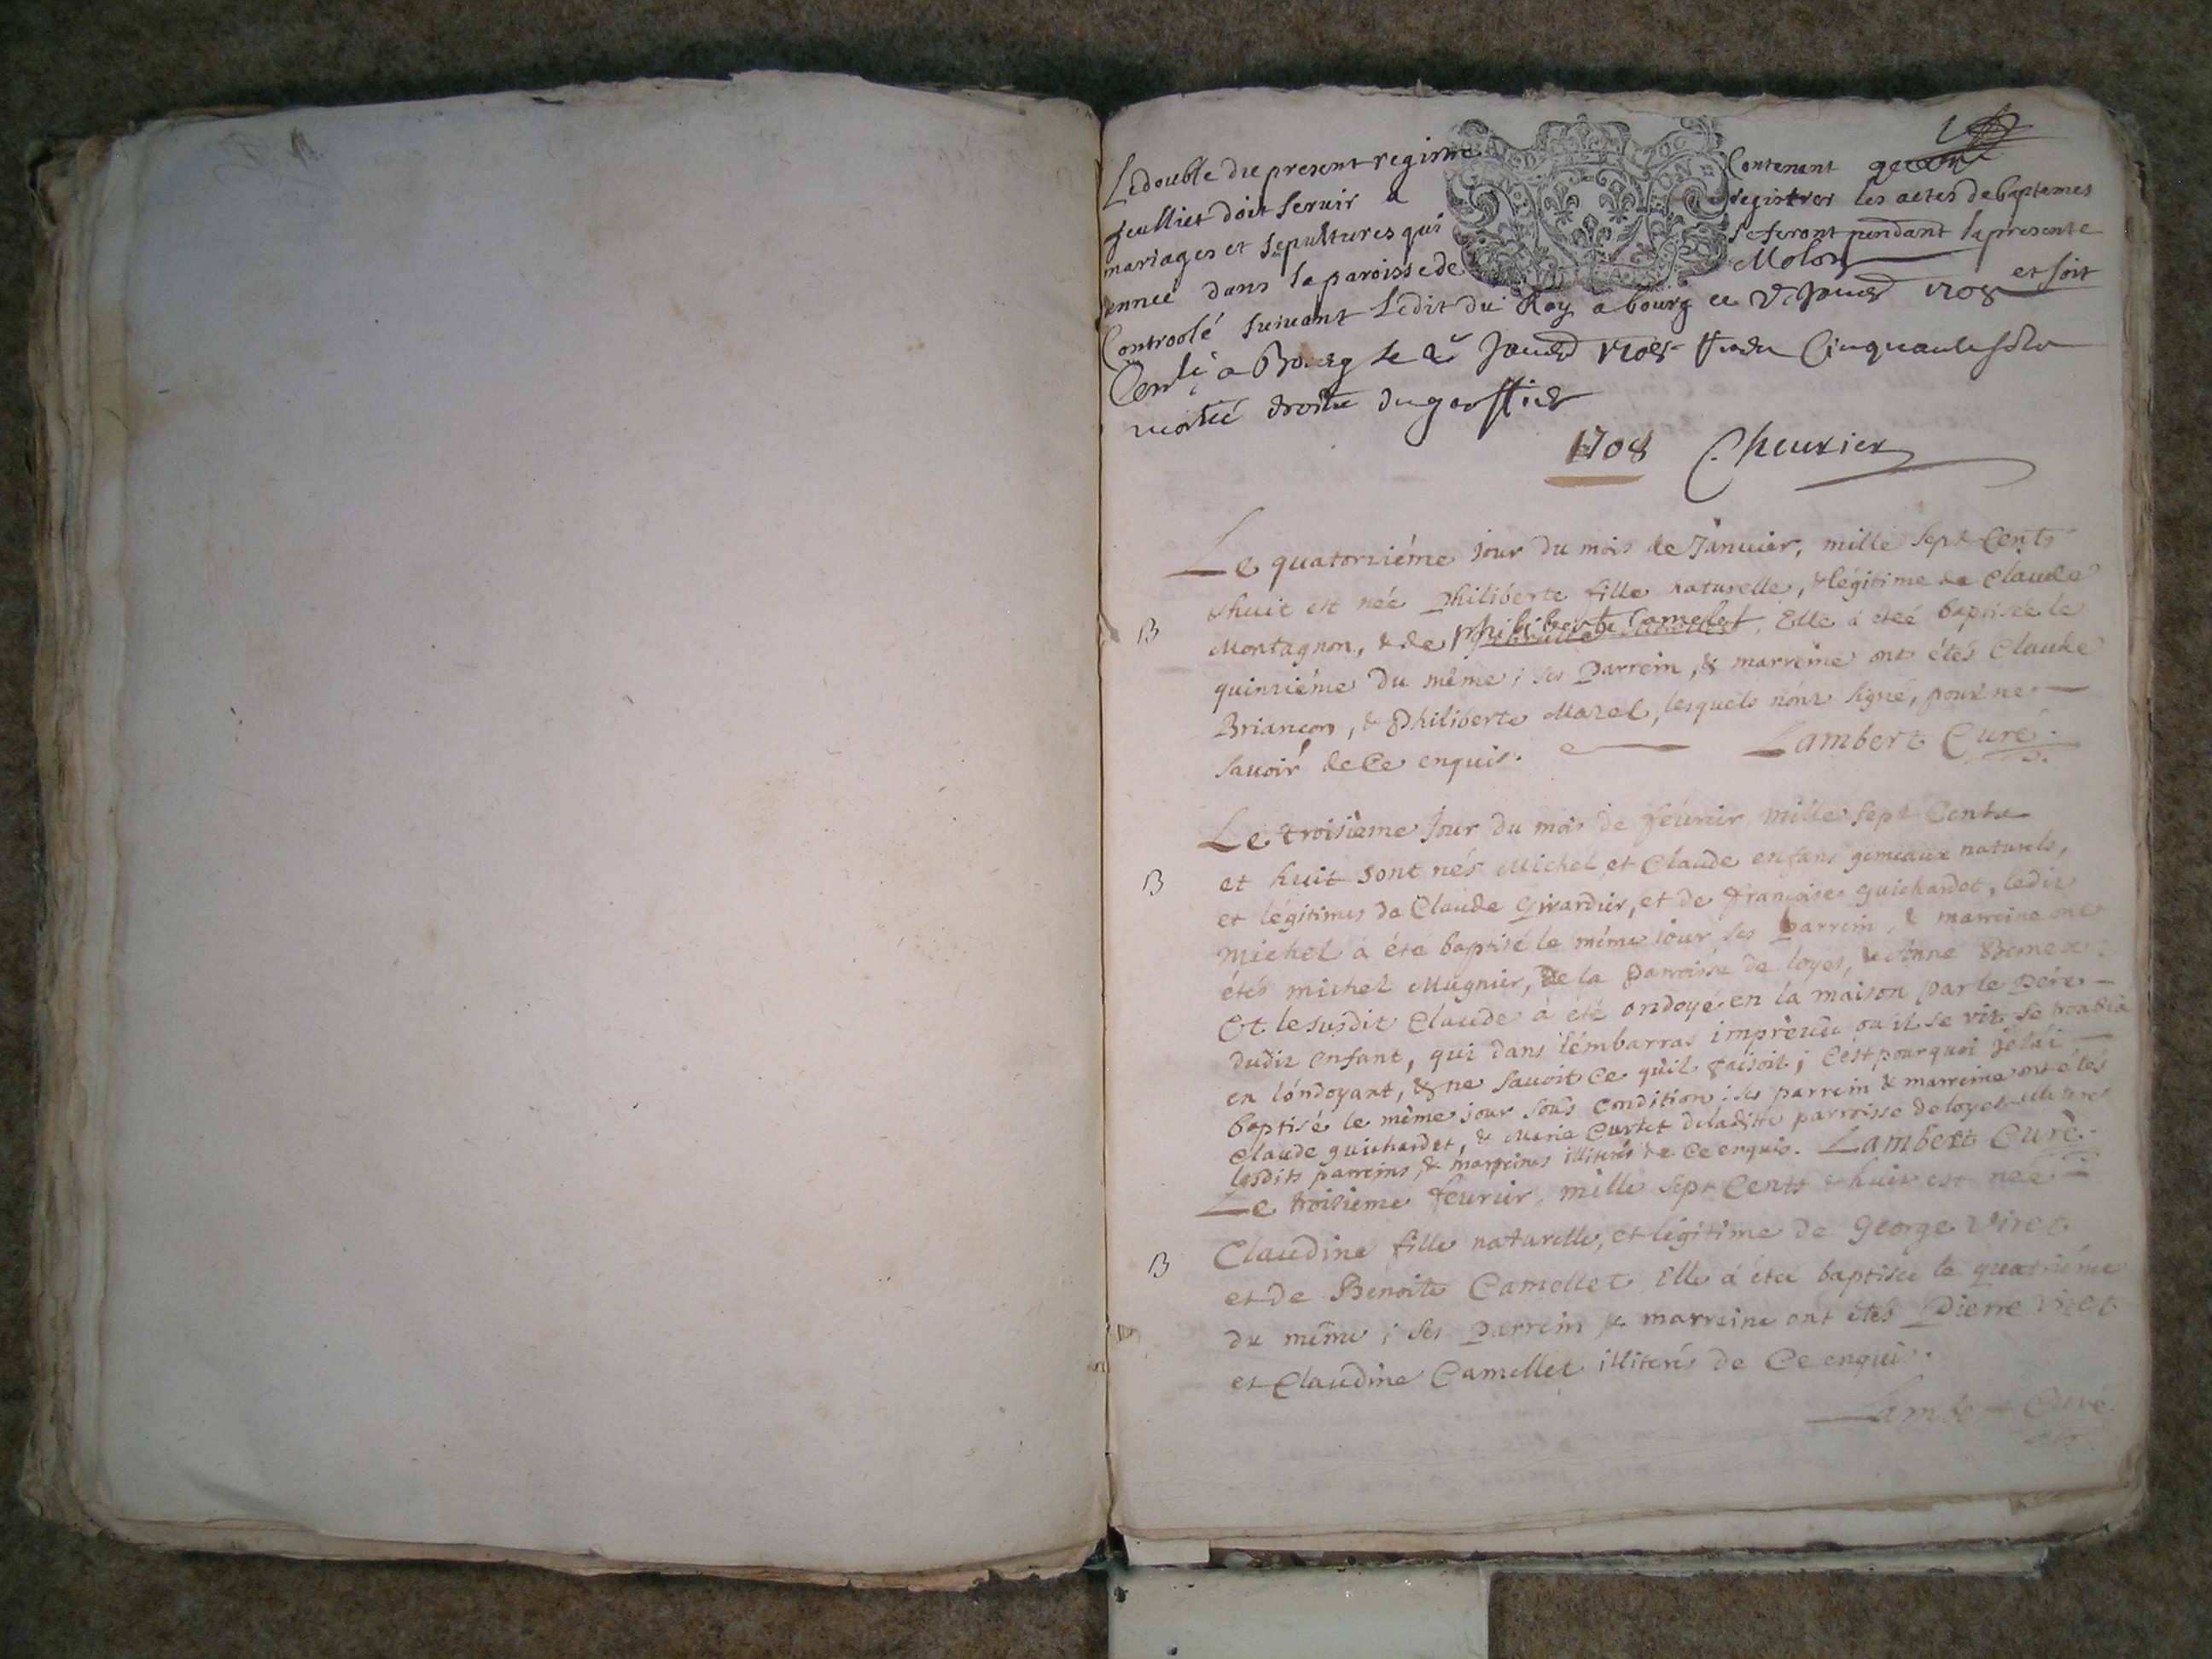 Le double du present registre Contenant
feulliet doit servir a registrer les actes de baptemes
mariages et sepultures qui se feront pendant la presente
année dans la paroisse de Molon
Controolé suivant L'edit du Roy a bourg ce 1708 et soit
a Bourg le 1708 Cinquante sols
droits du greffier
1708 Cheurier
Le quatorziéme jour du mois de Januier, mille sept Cents
& huit est née Philiberte fille naturelle, & légitime de Claude
B
Montagnon, & de philiberte Camelet. Elle à éteé baptisée le
quinziéme du même ; ses Parrein, & marreine ont étés Claude
Briançon, & Philiberte Mazel, lesquels n'ont signé, pour ne
savoir de Ce enquis. Lambert Curé.
Le troisieme jour du mois de féurier mille sept Cents
B
et huit sont nés Michel et Claude enfans gemeaux naturels,
et légitimes de Claude Girardier, et de françoise guichardet, ledit
Michel à été baptisé le même jour ses parrein, & marreine ont
étés michel Mugnier, de la Parroisse de loyes, & Anne
Et le susdit Claude à été ondoyé en la maison par le Pére
dudit enfant, qui dans l'émbarras impréuû ou il se vit se troubla
en l'óndoyant, & ne sauoit Ce qu'il faisoit ; C'ést pourquoi je l'ai
baptisé le même jour sous Condition ; ses parrein & marreine ont étés
Claude guichardet, & Marie Curtet de ladite parroisse de loyes
lesdits parreins, & marreines illiterés de Ce enquis. Lambert Curé.
Le troisieme feurier mille sept Cents & huit est née
B
Claudine fille naturelle, et légitime de George Viret
et de Benoite Camellet Elle à éteé baptisée le quatriéme
du même ; ses Parrein & marreine ont étés Pierre Viret
et Claudine Camellet illiterés de Ce enquis.
Lambert Curé.